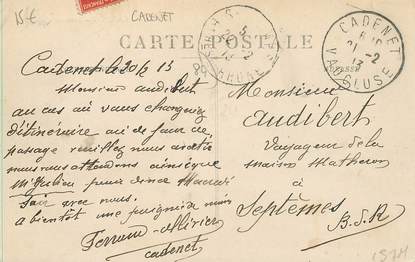 15€
CADENET
CARTE POSTALE
CADENET
21 -2
13
VAUCLUSE
Cadenet le 20/2 13
Monsieur Audibert
au cas où vous changeriez
d'itinéraire ou de jour de
passage veuillez nous
nous vous attendons ainsi que
Mr pour diner
soir avec nous.
a bientôt une poignée main
Ferrand-Ollivier
Cadenet
Monsieur
Audibert
Voyageur de la
maison Matheron
à
Septèmes
B.d.R